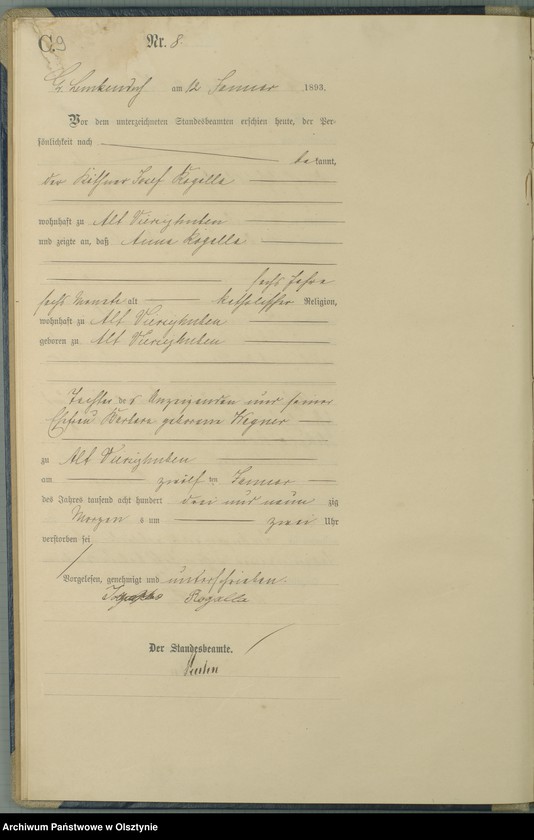 C.
9
Nr. 8.
G. Lemkendorf am 12 Januar 1893.
Vor dem unterzeichneten Standesbeamten erschien heute, der Per-
sönlichkeit nach
bekannt,
der Käthner Josef Rogalla
wohnhaft zu Alt Vierzighuben
und zeigte an, daß Anna Rogalla
sechs Jahre
sechs Monate alt katholischer Religion,
wohnhaft zu Alt Vierzighuben
geboren zu Alt Vierzighuben
Tochter des Anzeigenden und seiner
Ehefrau Barbara geborene Wegner
zu Alt Vierzighuben
am zwölf ten Januar
des Jahres tausend acht hundert drei und neun zig
Morgen s um zwei Uhr
verstorben sei
Vorgelesen, genehmigt und unterschrieben.
Rogalla
Der Standesbeamte.
Archiwum Państwowe w Olsztynie